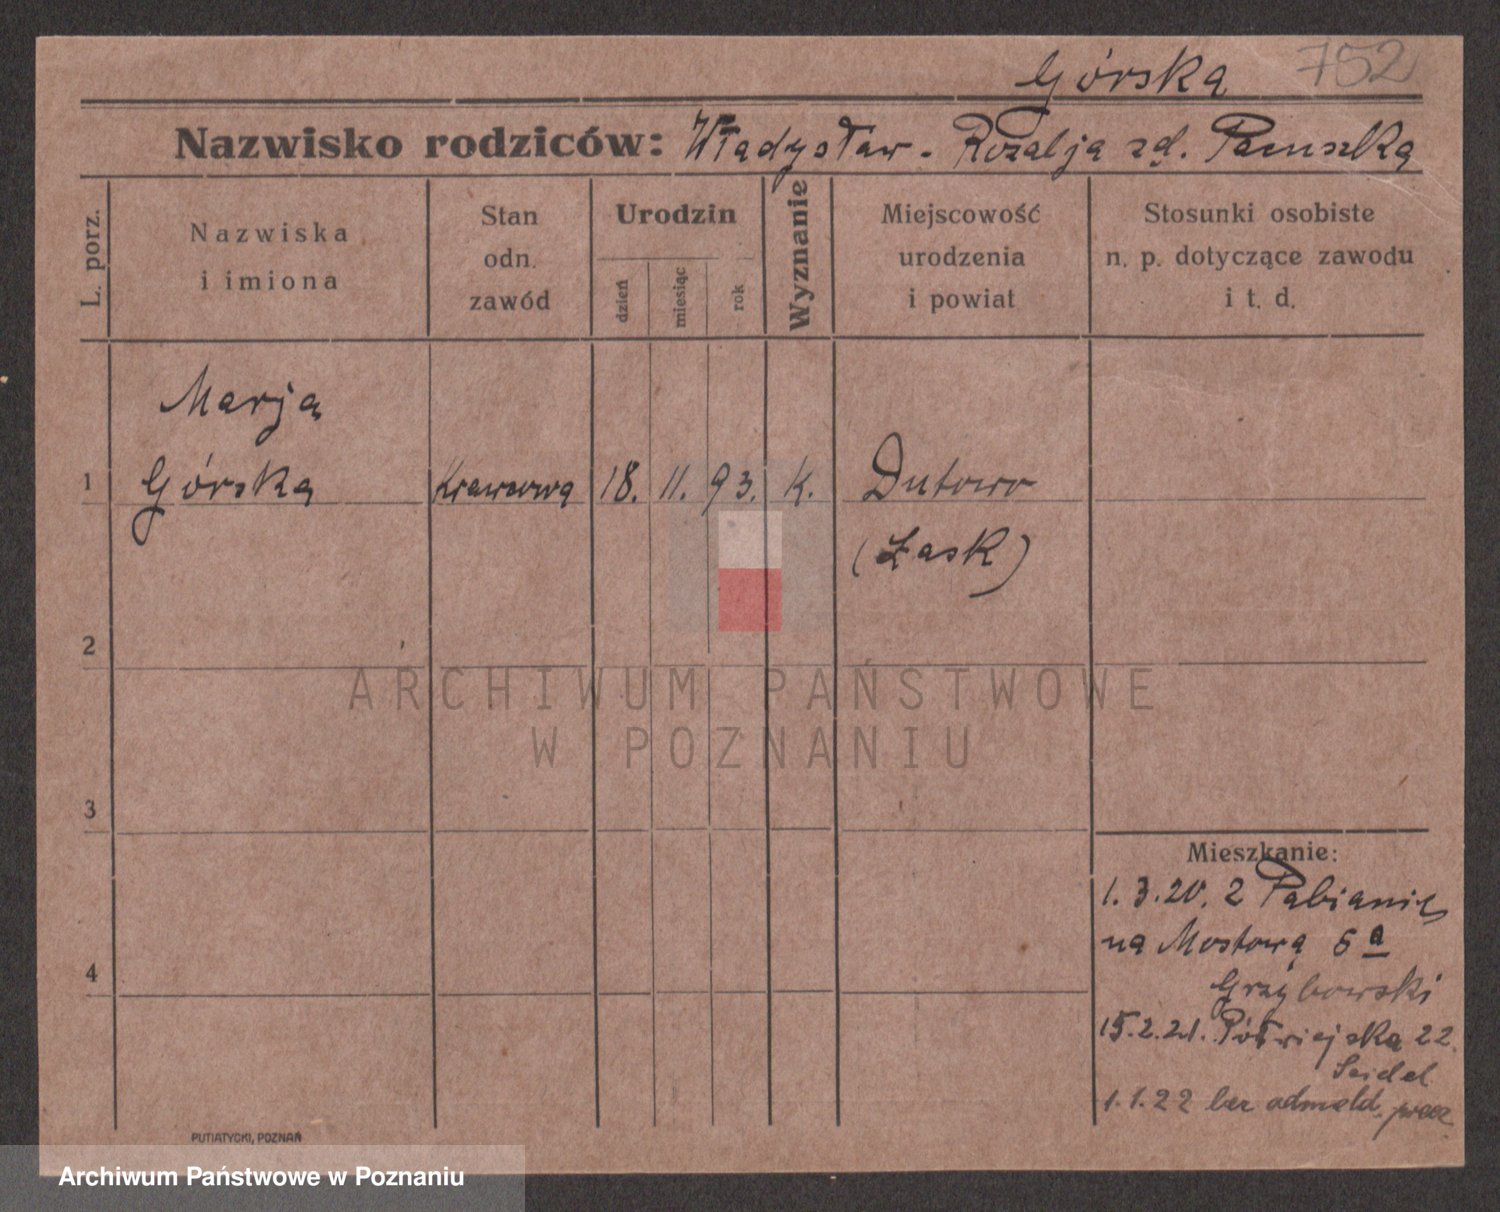 Górska 752
Nazwisko rodziców: Władysław - Rozalja zd. Pamszka
L. porz.
Nazwiska
i imiona
Stan
odn.
zawód
Urodzin
dzień
miesiąc
rok
Wyznanie
Miejscowość
urodzenia
i powiat
Stosunki osobiste
n. p. dotyczące zawodu
i t. d.
Marja
1 Górska Krawcowa 18. 11. 93. K. Dutowo
(Łask)
2
3
4
Mieszkanie:
1.3.20. z Pabianic
na Mostową 6 a
Grzybowski
15.2.21. Półwiejska 22.
Seidel
1.1.22 bez odmeld. precz
PUTIATYCKI, POZNAŃ
ARCHIWUM PAŃSTWOWE
W POZNANIU
Archiwum Państwowe w Poznaniu